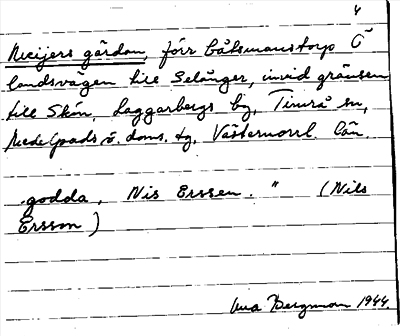 4
Meijers gården, förr båtsmanstorp Ö
landsvägen till Selånger, invid gränsen
till Skön, Laggarbergs by, Timrå sn,
Medelpads ö. doms. tg, Västernorrl. län.
godda, Nis Erssen. " (Nils
Ersson)
Bergman 1944.